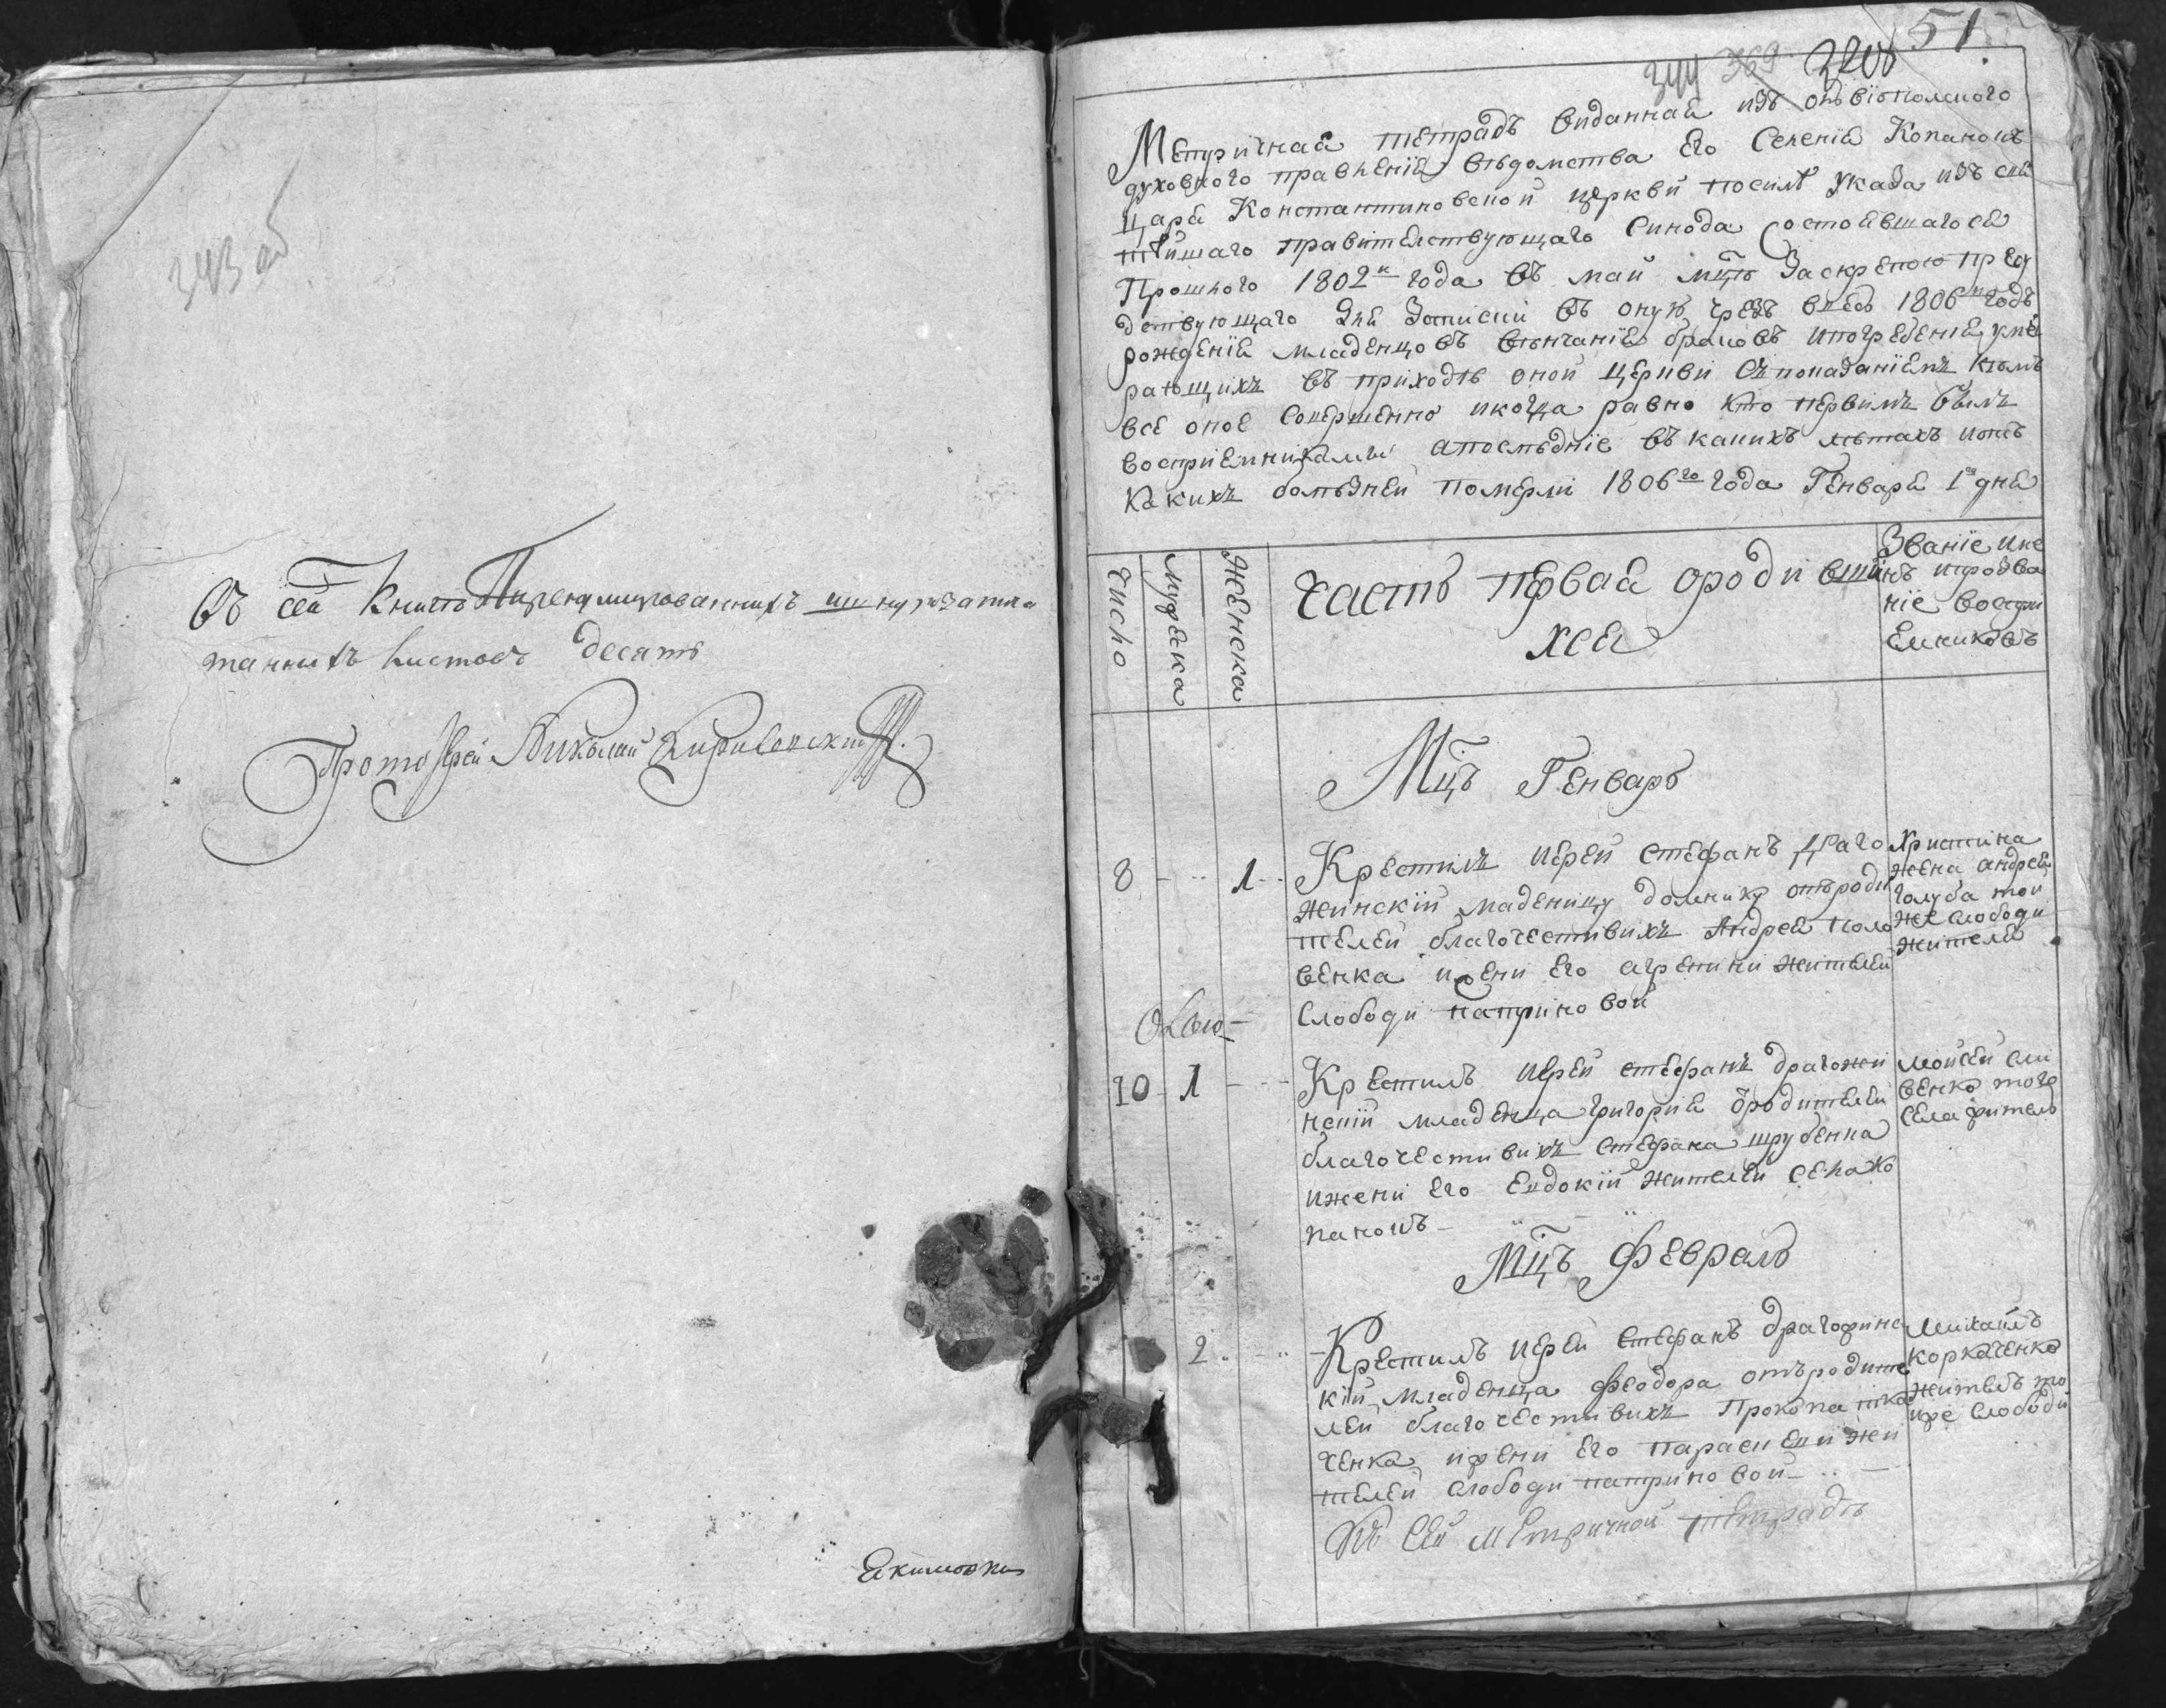 343 об
Въ сей книгѣ перенумерованнихъ и шнуръ затпа
таннихъ листовъ десять
Протоіерей Николай
Екимовки
51
344 369
Метричная тетрадъ виданная изъ овѣіополского
духовного правленія вѣдомства его Селенія Копанокъ
царя Константиновской церкви посилѣ указа изъ свя
тѣйшаго правителствующаго Синода состоявшагося
Прошлого 1802и года въ май мцѣ Заскрепою пред
детвующаго Для Записки въ оную чрезъ весь 1806й годъ
рожденія младенцовъ вѣнчанія браковъ ипогребенія уми
рающихъ въ приходѣ оной церкви Съпоказаніемъ кѣмъ
все оное Совершенно икогда равно кто первимъ билъ
восприемниками апослѣдніе въ какихъ лѣтахъ иотъ
какихъ болѣзней померли 1806го года Генваря 1го дня
Число
Мужеска
Женска
Часть первая ороди вши
хся
Званіе име
нъ ипрозва
ніе воспри
емниковъ
Мцъ Генварь
8 1
Крестилъ иерей Стефанъ Драго
жинскій младеницу домнику отъроди
телей благочестивихъ Андрея поло
венка ижени его агрепини жителей
Слободи катриновой
Христина
жена андрея
голуба той
же слободи
жителя
10 1
Крестилъ иерей стефанъ драгожи
нскій младенца григорія ѿродителей
благочестивихъ стефана трубенка
ижени его Евдокіи жителей села Ко
панокъ
Моисей сли
венко того
села житель
Мцъ Февраль
2
Крестилъ иерей Стефанъ драгожинс
кій младенца Феодора отъродите
лей благочестивихъ Прокопа тка
ченка ижени его параскевии жи
телей слободи катриновой
Михаилъ
коркаченко
житель то
иже слободи
Въ сей метричной тетрадѣ